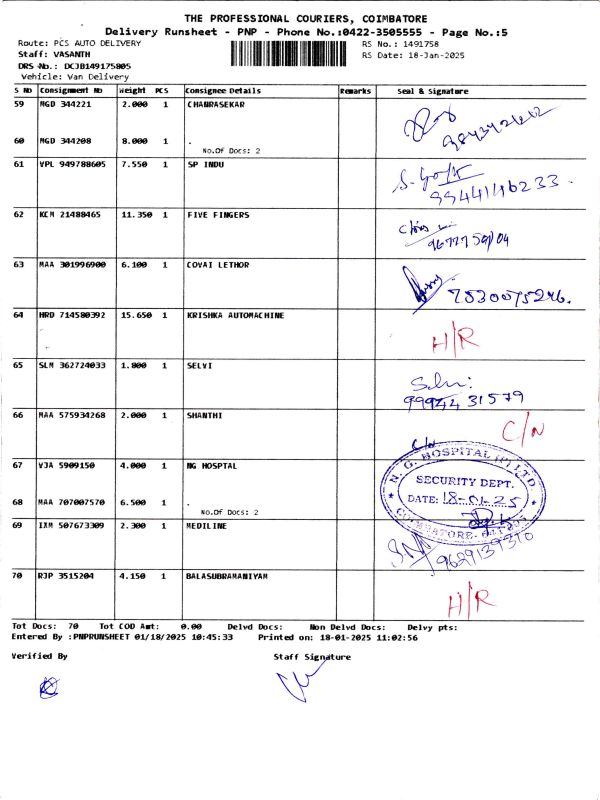 THE PROFESSIONAL COURIERS, COIMBATORE
Delivery Runsheet - PNP - Phone No.:0422-3505555 - Page No.:5
Route: PCS AUTO DELIVERY
RS No.: 1491758
Staff: VASANTH
RS Date: 18-Jan-2025
DRS No.: DCJB149175805
Vehicle: Van Delivery
S No Consignment No Weight PCS Consignee Details Remarks Seal & Signature
59 MGD 344221 2.000 1 CHANRASEKAR
60 MGD 344208 8.000 1 .
No.Of Docs: 2
61 VPL 949788605 7.550 1 SP INDU
9944146233.
62 KCM 21488465 11.350 1 FIVE FINGERS
63 MAA 301996900 6.100 1 COVAI LETHOR
7530075246.
64 HRD 714580392 15.650 1 KRISHKA AUTOMACHINE
H/R
65 SLM 362724033 1.800 1 SELVI
Selvi
9994431579
66 MAA 575934268 2.000 1 SHANTHI
C/N
C/N
67 VJA 5909150 4.000 1 NG HOSPTAL
N. G. HOSPITAL (P) LTD
SECURITY DEPT.
DATE: 18-01-25
68 MAA 707007570 6.500 1 .
No.Of Docs: 2
COIMBATORE
69 IXM 507673309 2.300 1 MEDILINE
9629139310
70 RJP 3515204 4.150 1 BALASUBRAMANIYAM
H/R
Tot Docs: 70 Tot COD Amt: 0.00 Delvd Docs: Non Delvd Docs: Delvy pts:
Entered By :PNPRUNSHEET 01/18/2025 10:45:33 Printed on: 18-01-2025 11:02:56
Verified By Staff Signature